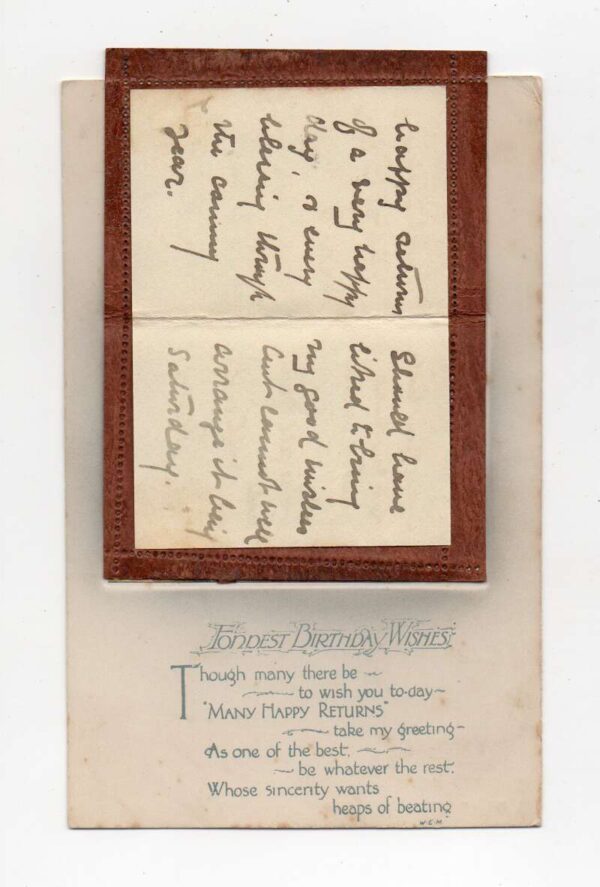 happy returns
of a very happy
day, & every
blessing through
the coming
year.
Should have
liked to bring
my good wishes
but cannot well
arrange it being
Saturday.
FONDEST BIRTHDAY WISHES
Though many there be
to wish you to-day
"MANY HAPPY RETURNS"
take my greeting
As one of the best,
be whatever the rest.
Whose sincerity wants
heaps of beating
W.E.M.